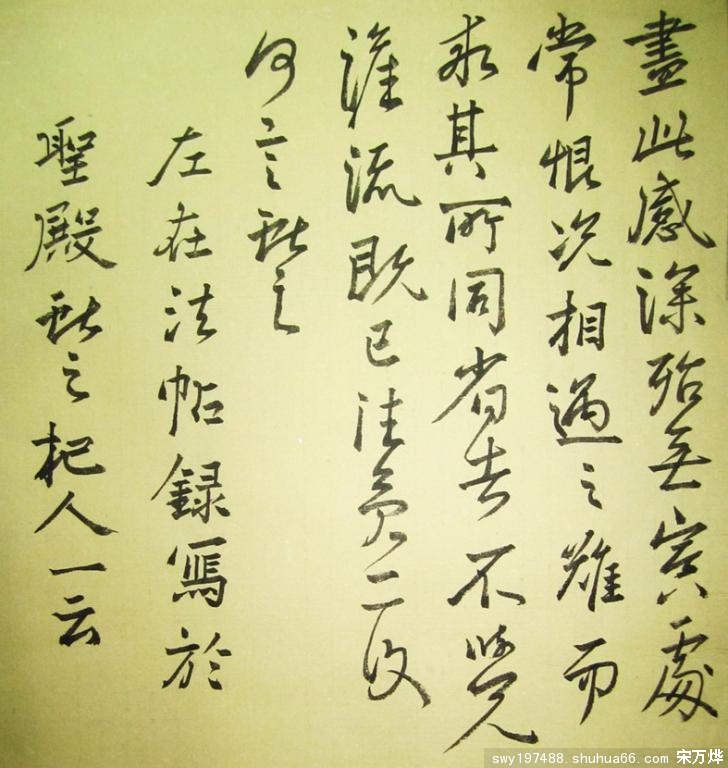 盡此感深殆無宾處
常恨况相遇之難而
求其所同省告不覺
誰流既已往矣二复
何言献之
左在法帖録寫於
聖殿献之杞人一云
swy197488.shuhua66.com 宋万烨